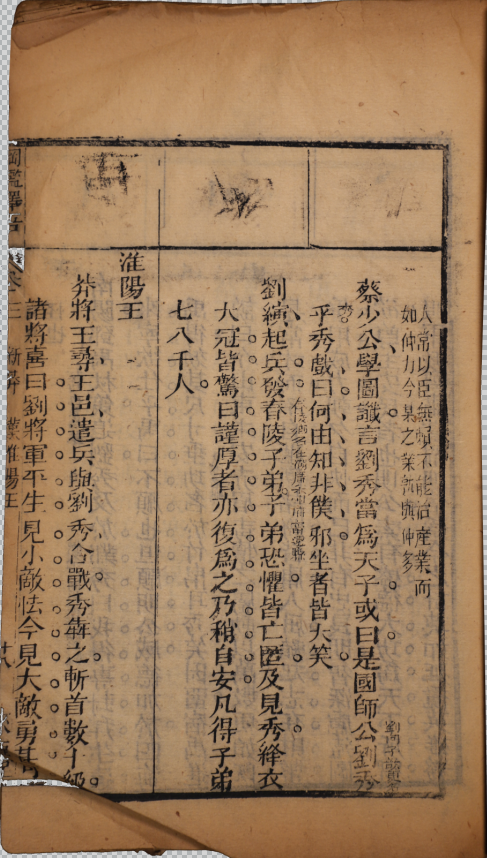 人常以臣無賴不能治產業而
如仲力今某之業孰與仲多
蔡少公學圖讖言劉秀當爲天子或曰是國師公劉秀
乎秀戲曰何由知非僕邪坐者皆大笑
劉縯起兵發舂陵子弟子弟恐懼皆亡匿及見秀絳衣
大冠皆驚曰謹厚者亦復爲之乃稍自安凡得子弟
七八千人
淮陽王
莽將王尋王邑遣兵與劉秀合戰秀犇之斬首數十級
諸將喜曰劉將軍平生見小敵怯今見大敵勇甚
淮陽王